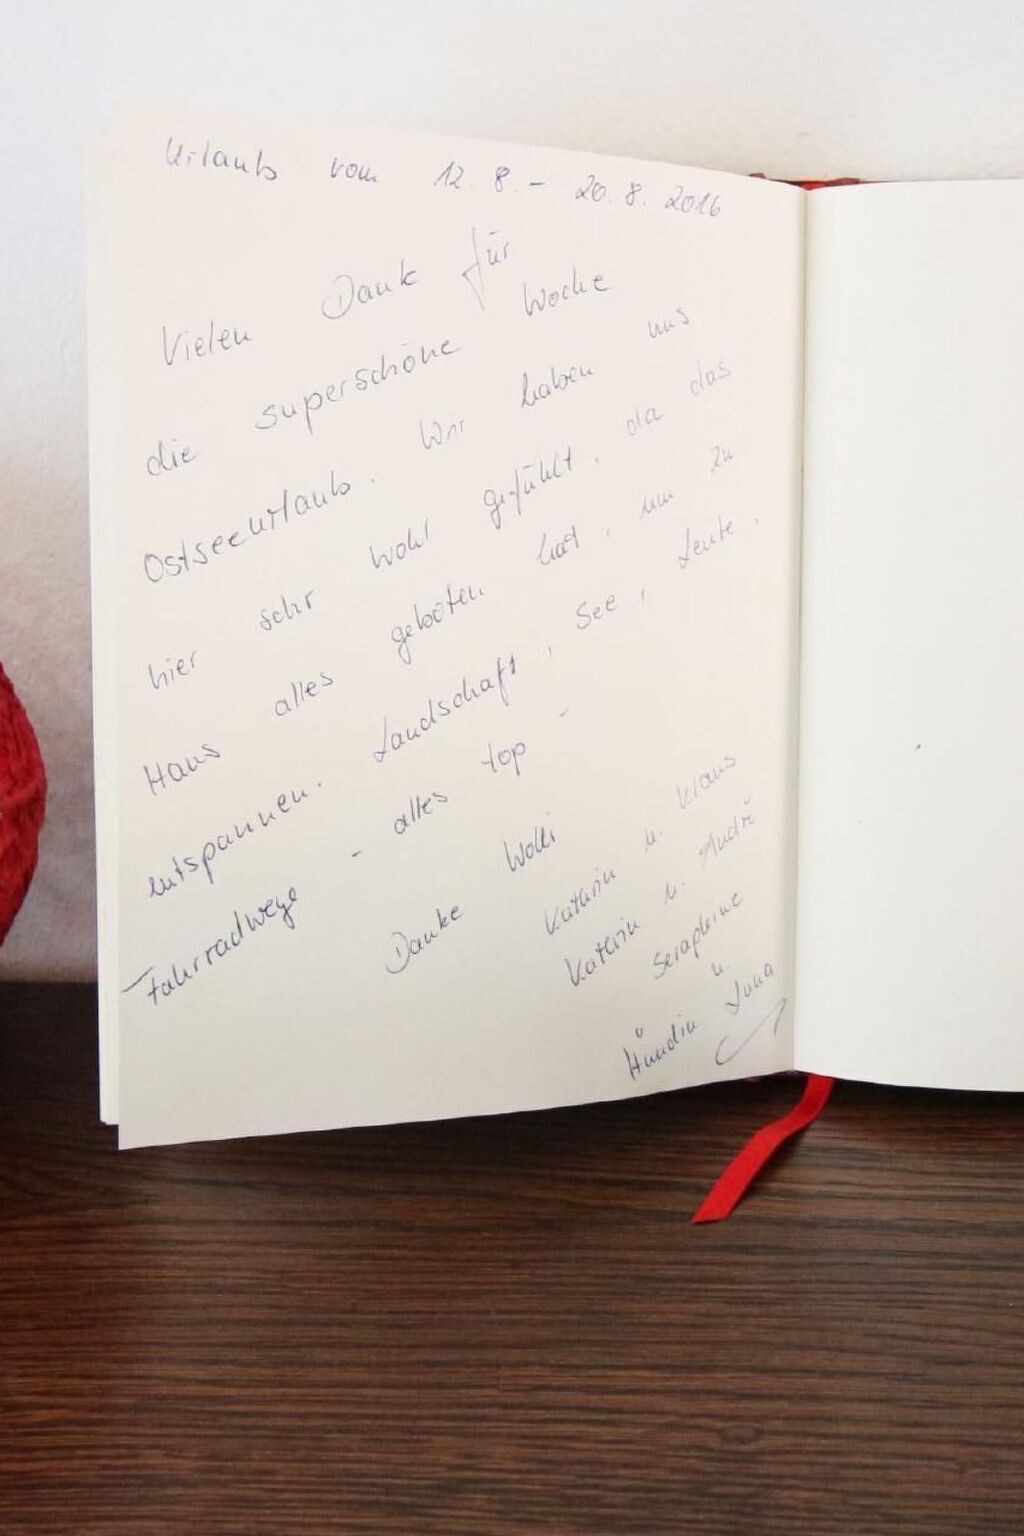 Urlaub vom 12.8.- 20.8.2016
Vielen Dank für
die superschöne Woche
Ostseeurlaub. Wir haben uns
hier sehr wohl gefühlt, da das
Haus alles geboten hat, um zu
entspannen. Landschaft, See, Leute,
Fahrradwege - alles top -
Danke Wolli
Kathrin u. Klaus
Katrin u. André
Seraphine
u.
Hündin Luna